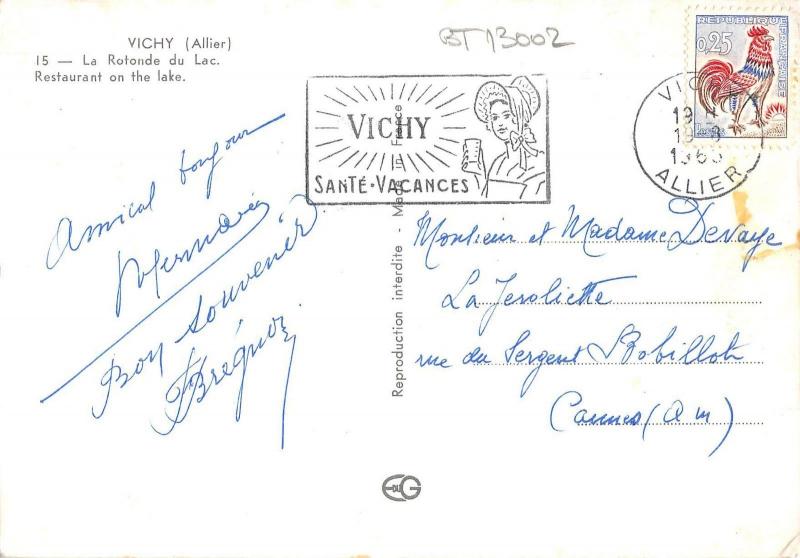 VICHY (Allier)
15 — La Rotonde du Lac.
Restaurant on the lake.
BT 13002
REPUBLIQUE
FRANÇAISE
0,25
VICHY
SANTÉ·VACANCES
VICHY
19
ALLIER
Amical bonjour
Bon souvenir
Reproduction interdite - Made in France
Monsieur et Madame Devaye
La
rue du Sergent Bobillot
Cannes (A m)
EDUG